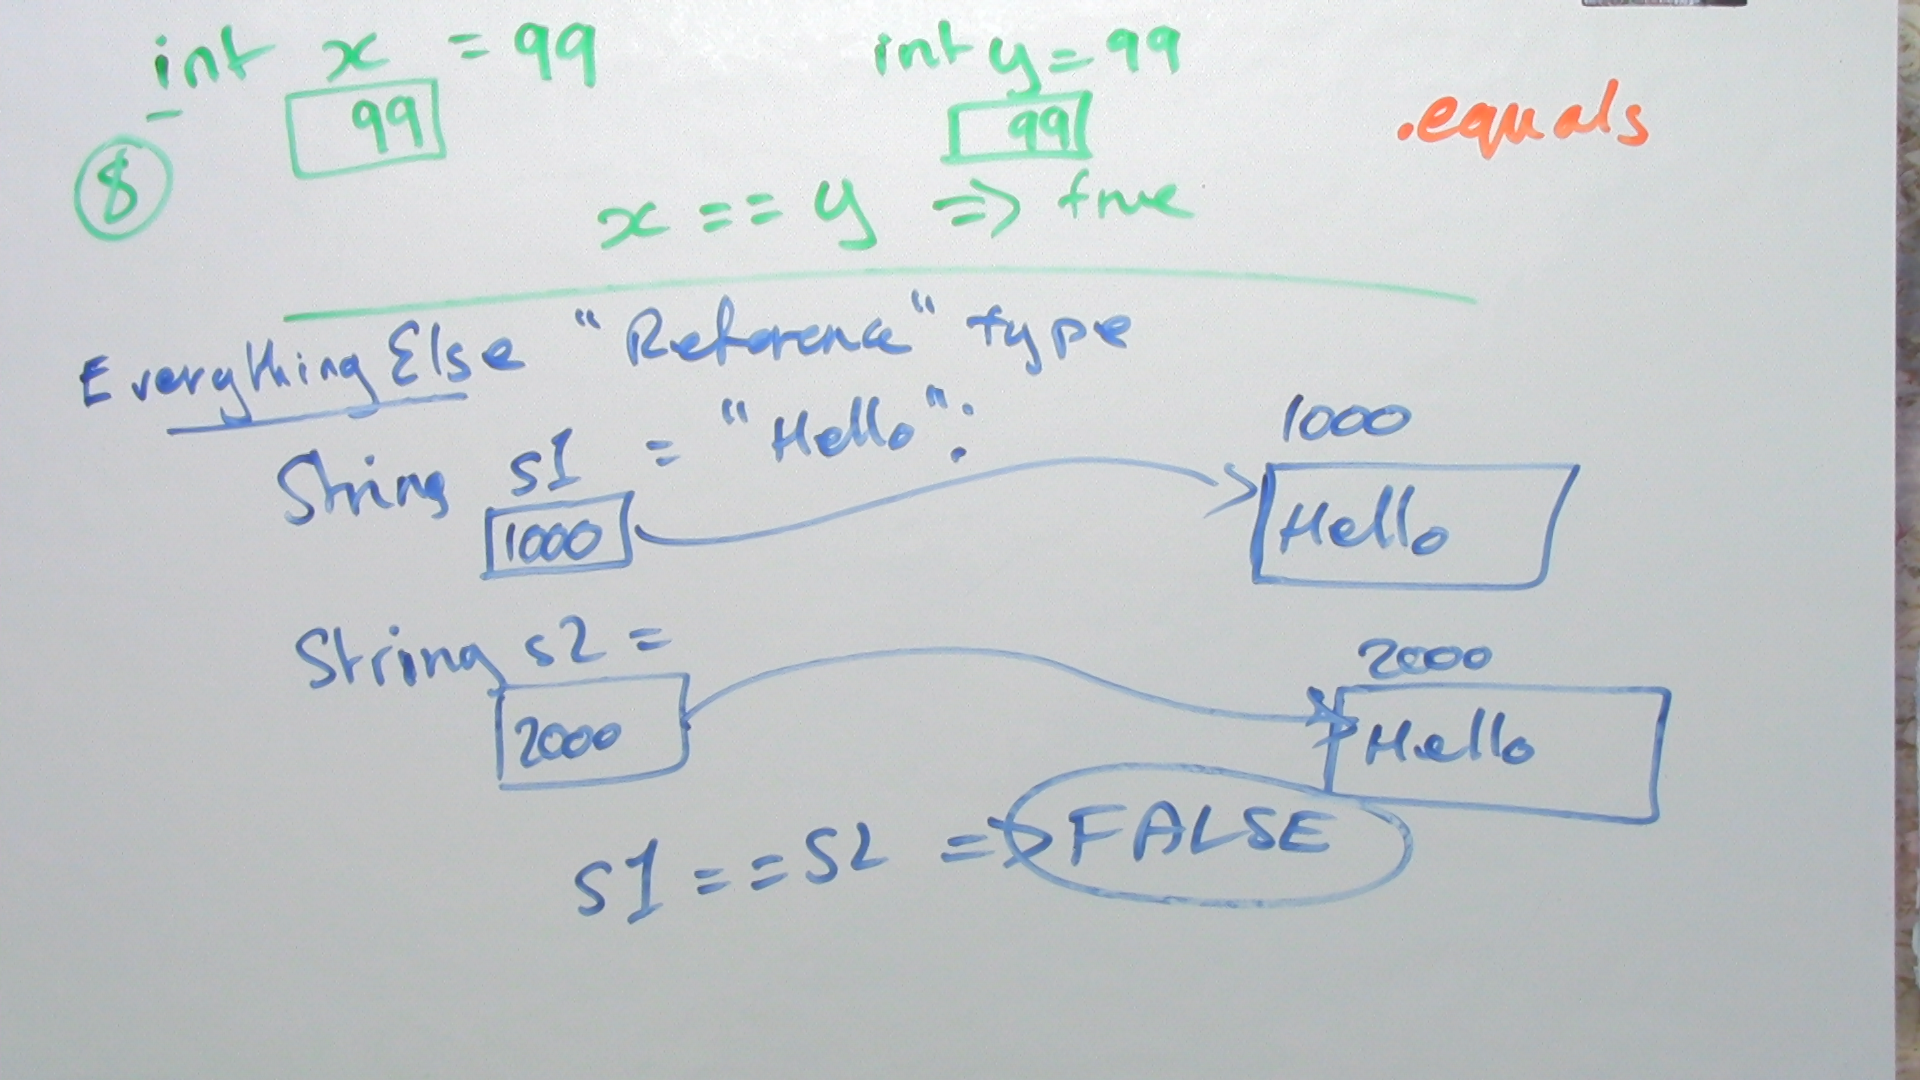 int x = 99 int y = 99
99 99
.equals
8
x == y => true
Everything Else "Reference" type
String s1 = "Hello";
1000
1000
Hello
String s2 =
2000
2000
Hello
s1 == s2 => FALSE